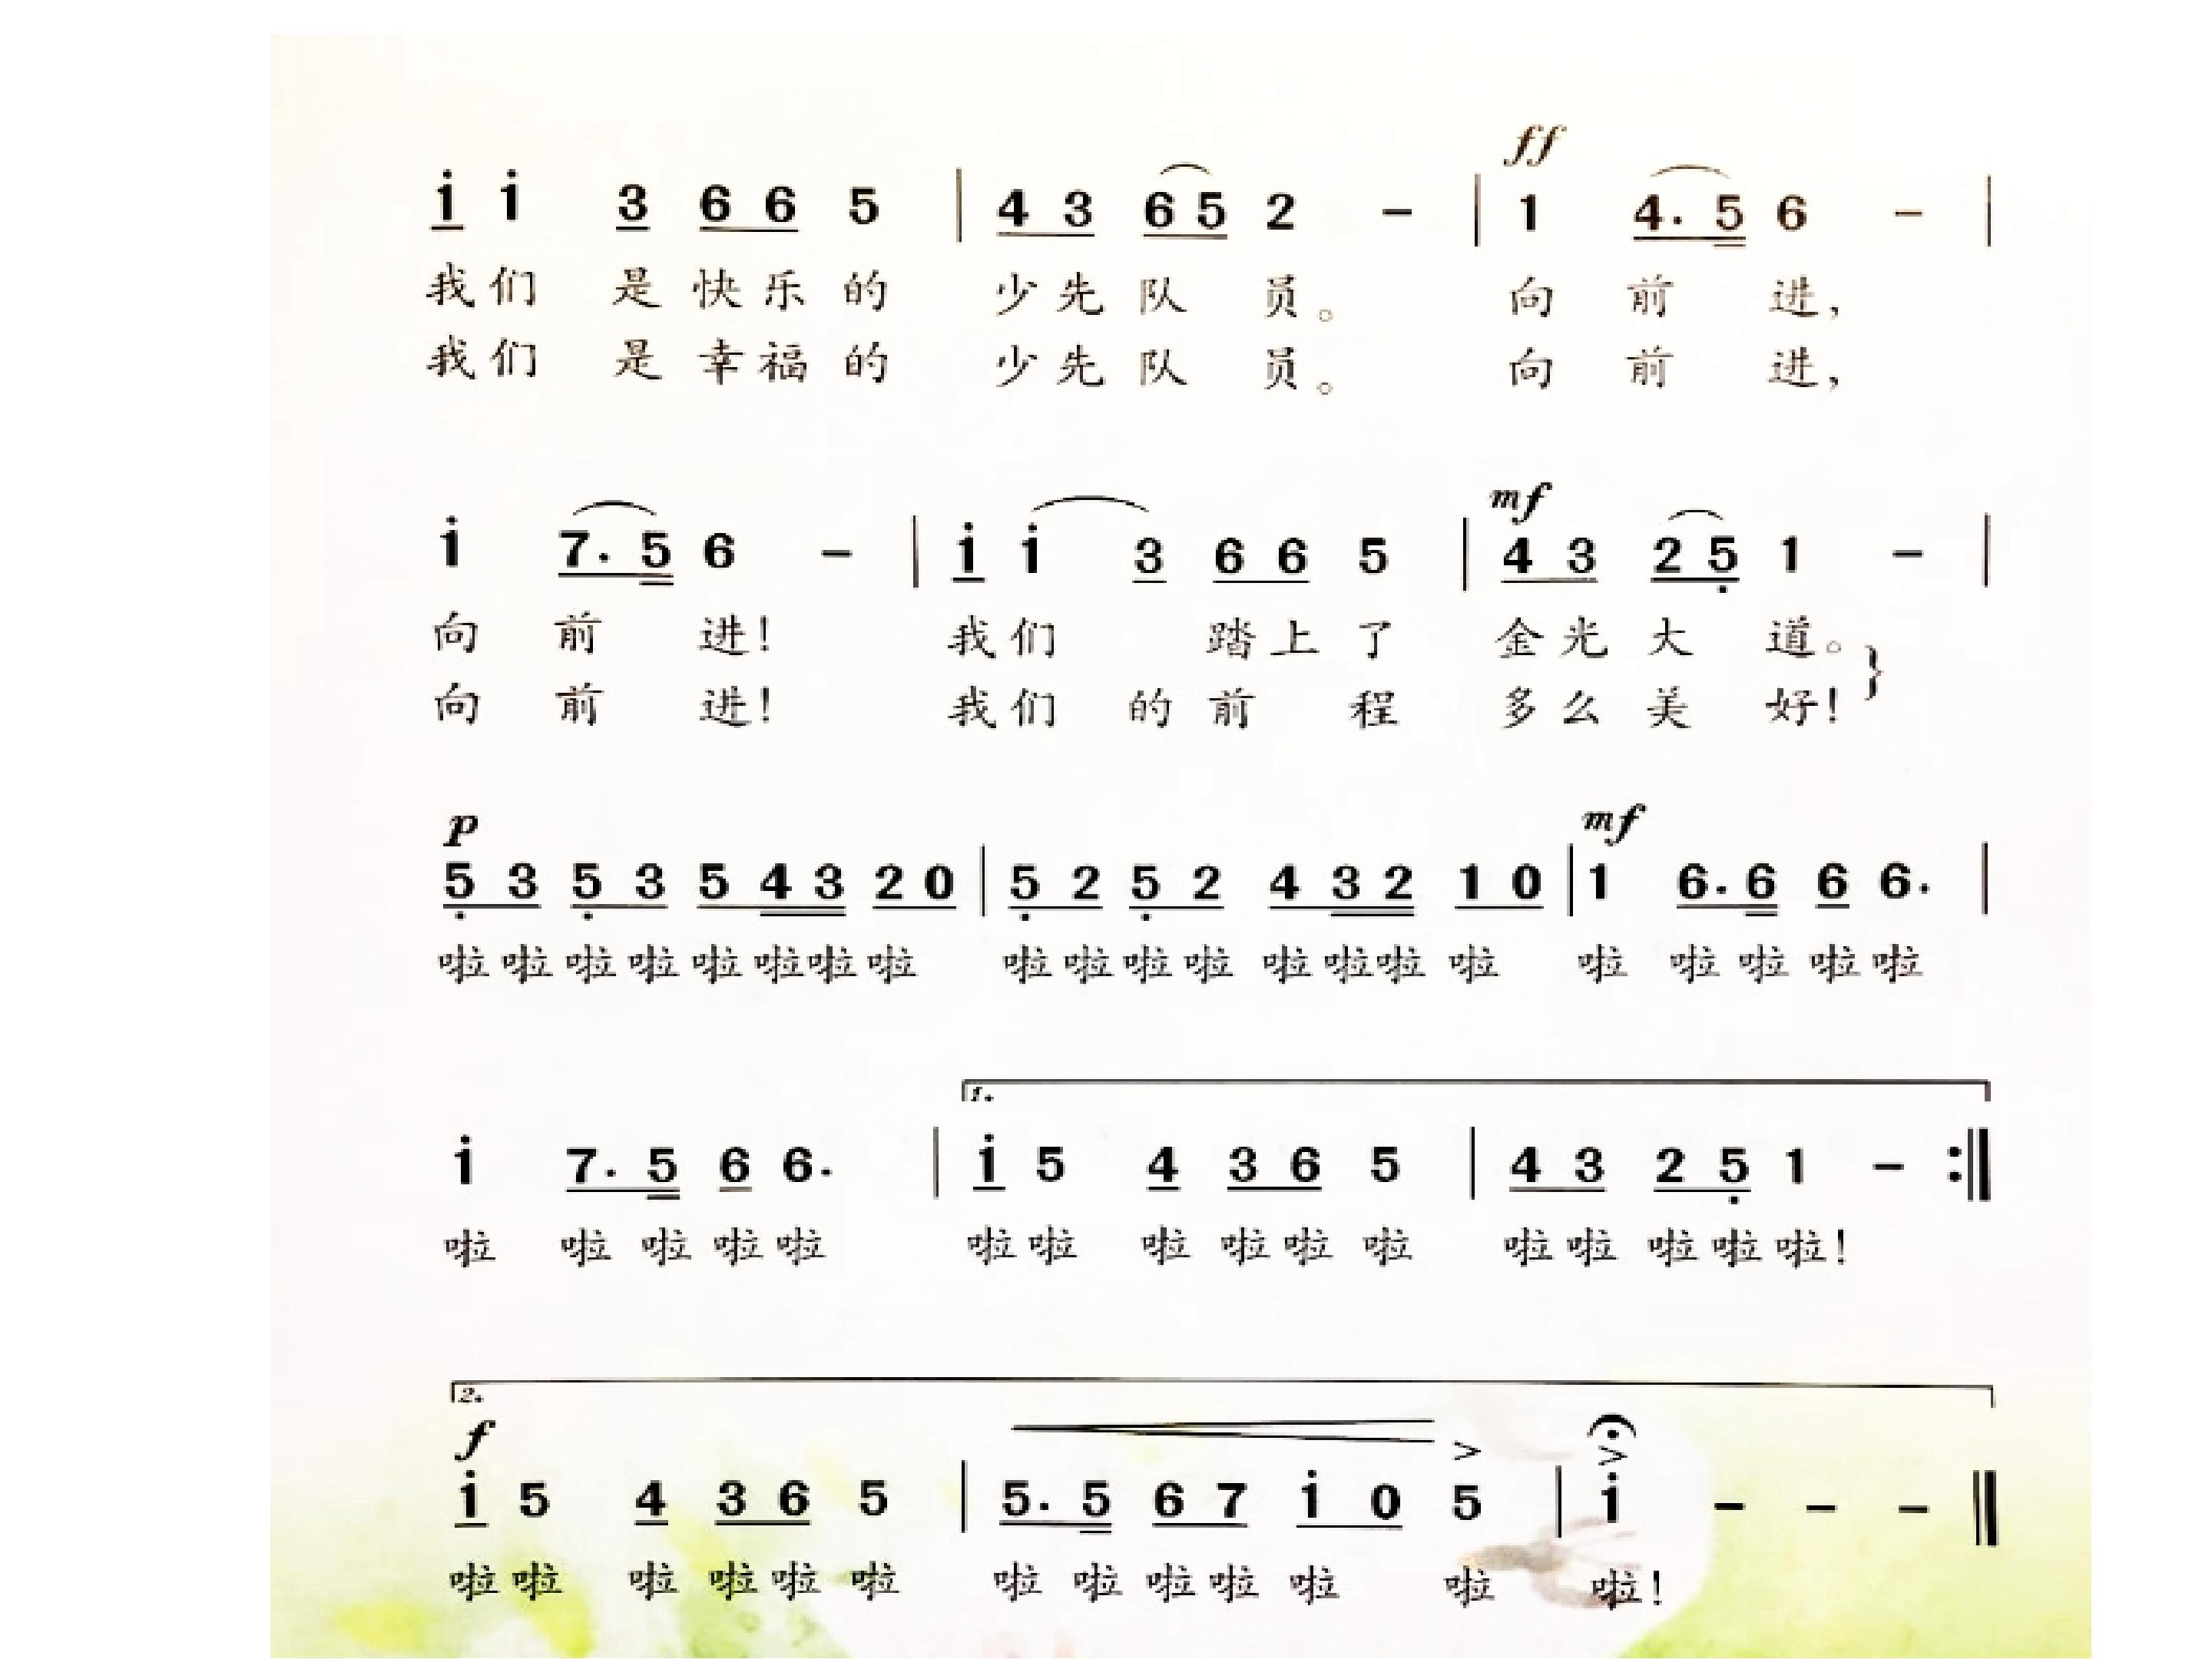 ff
i i 3 6 6 5 | 4 3 6 5 2 - | 1 4. 5 6 - |
我们 是 快乐 的 少先队 员。 向 前 进，
我们 是 幸福 的 少先队 员。 向 前 进，
mf
i 7. 5 6 - | i i 3 6 6 5 | 4 3 2 5 1 - |
向 前 进！ 我们 踏上 了 金光大 道。
向 前 进！ 我们 的前 程 多么美 好！}
p mf
5 3 5 3 5 4 3 2 0 | 5 2 5 2 4 3 2 1 0 | 1 6. 6 6 6. |
啦啦啦啦啦啦啦啦 啦啦啦啦啦啦啦啦 啦 啦啦啦啦
1.
i 7. 5 6 6. | i 5 4 3 6 5 | 4 3 2 5 1 - :||
啦 啦啦啦啦 啦啦 啦 啦啦 啦 啦啦啦啦啦！
2.
f > >
i 5 4 3 6 5 | 5. 5 6 7 i 0 5 | i - - - ||
啦啦 啦 啦啦 啦 啦啦啦啦啦 啦 啦！